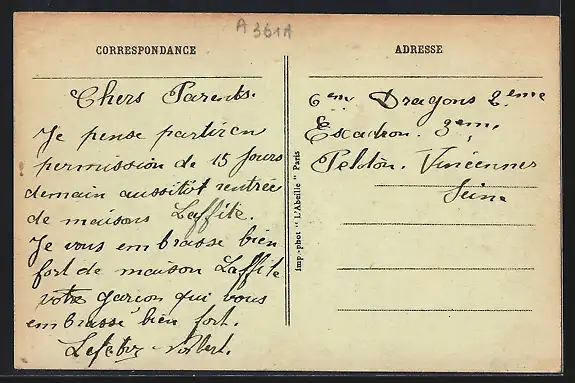 A 361A
CORRESPONDANCE
Chers Parents.
Je pense partir en
permission de 15 Jours
demain aussitôt rentrée
de maisons Laffite.
Je vous embrasse bien
fort de maison Laffite
votre garcon qui vous
embrasse bien fort.
Norbert.
Imp.-phot "L'Abeille" Paris
ADRESSE
6em Dragons 2eme
Escadron. 3em.
Peloton. Vincennes
Seine